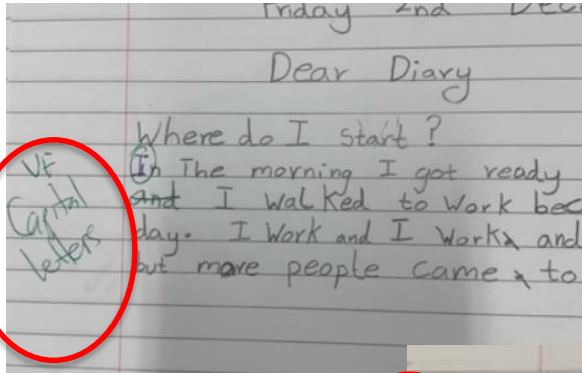 Friday 2nd Dec
Dear Diary
Where do I start?
In The morning I got ready
and I walked to work bec
day. I work and I work and
but more people came to
VF
Capital
letters